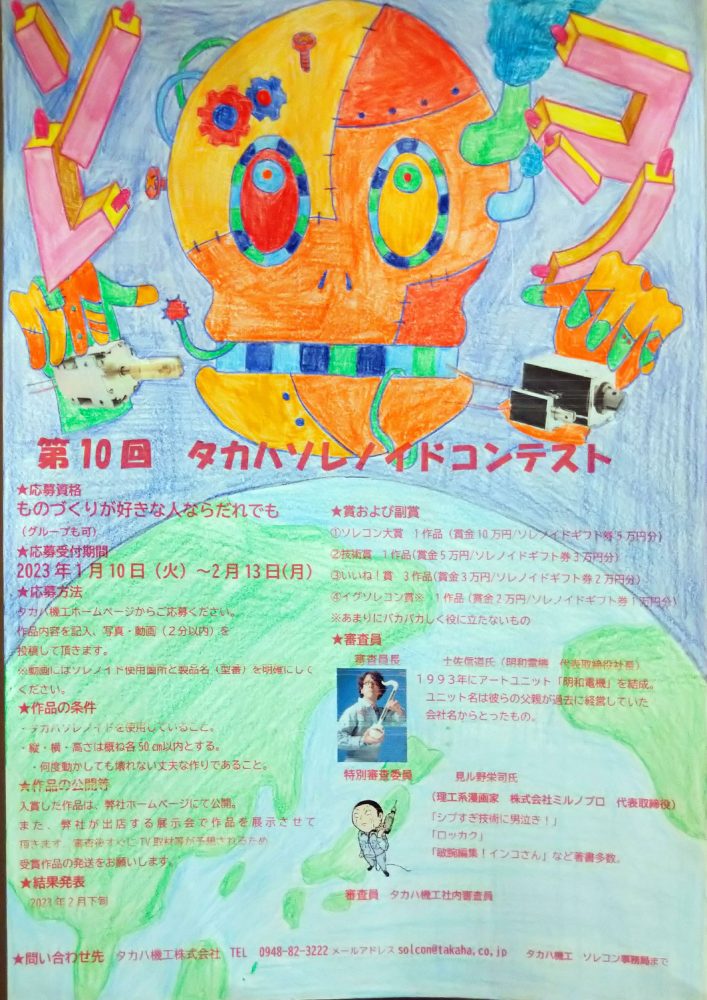 ソレコン
第10回 タカハソレノイドコンテスト
★応募資格
ものづくりが好きな人ならだれでも
(グループも可)
★応募受付期間
2023年1月10日(火)～2月13日(月)
★応募方法
タカハ機工ホームページからご応募ください。
作品内容を記入、写真・動画(2分以内)を
投稿して頂きます。
※動画にはソレノイド使用箇所と製品名(型番)を明確にして
ください。
★作品の条件
・タカハソレノイドを使用していること。
・縦・横・高さは概ね各50㎝以内とする。
・何度動かしても壊れない丈夫な作りであること。
★作品の公開等
入賞した作品は、弊社ホームページにて公開。
また、弊社が出店する展示会で作品を展示させて
頂きます。審査後すぐにTV取材等が予想されるため
受賞作品の発送をお願いします。
★結果発表
2023年2月下旬
★賞および副賞
①ソレコン大賞 1作品(賞金10万円/ソレノイドギフト券5万円分)
②技術賞 1作品(賞金5万円/ソレノイドギフト券3万円分)
③いいね!賞 3作品(賞金3万円/ソレノイドギフト券2万円分)
④イグソレコン賞※ 1作品(賞金2万円/ソレノイドギフト券1万円分)
※あまりにバカバカしく役に立たないもの
★審査員
審査員長 土佐信道氏(明和電機 代表取締役社長)
1993年にアートユニット「明和電機」を結成。
ユニット名は彼らの父親が過去に経営していた
会社名からとったもの。
特別審査委員 見ル野栄司氏
(理工系漫画家 株式会社ミルノプロ 代表取締役)
「シブすぎ技術に男泣き!」
「ロッカク」
「敏腕編集!インコさん」など著書多数。
審査員 タカハ機工社内審査員
★問い合わせ先 タカハ機工株式会社 TEL 0948-82-3222 メールアドレス solcon@takaha.co.jp タカハ機工 ソレコン事務局まで